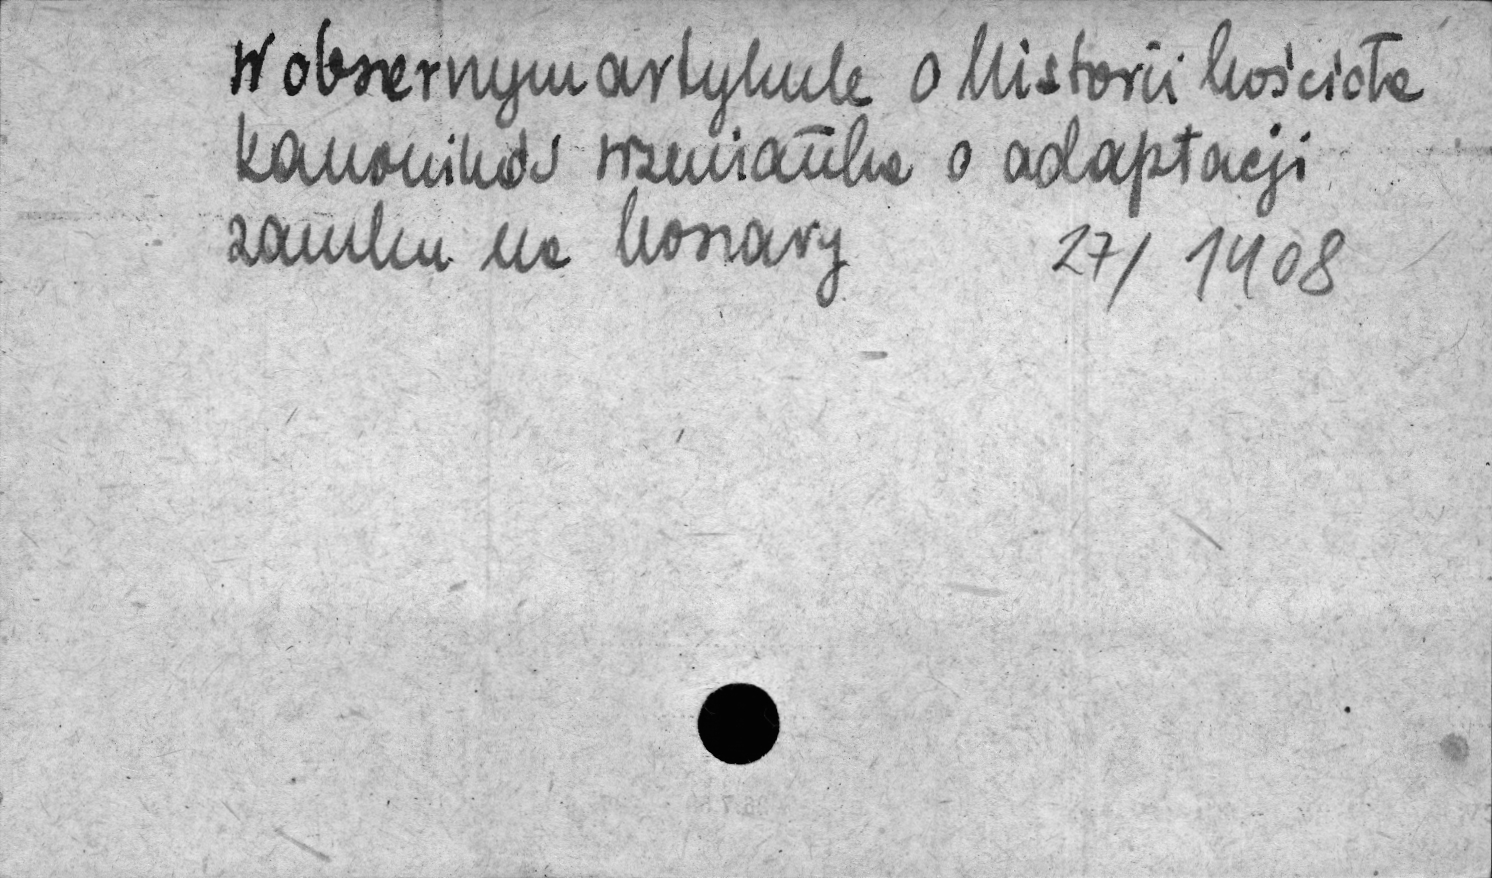 W obszernym artykule o historii kościoła
kanoników wzmianka o adaptacji
zamku na koszary 27/1408